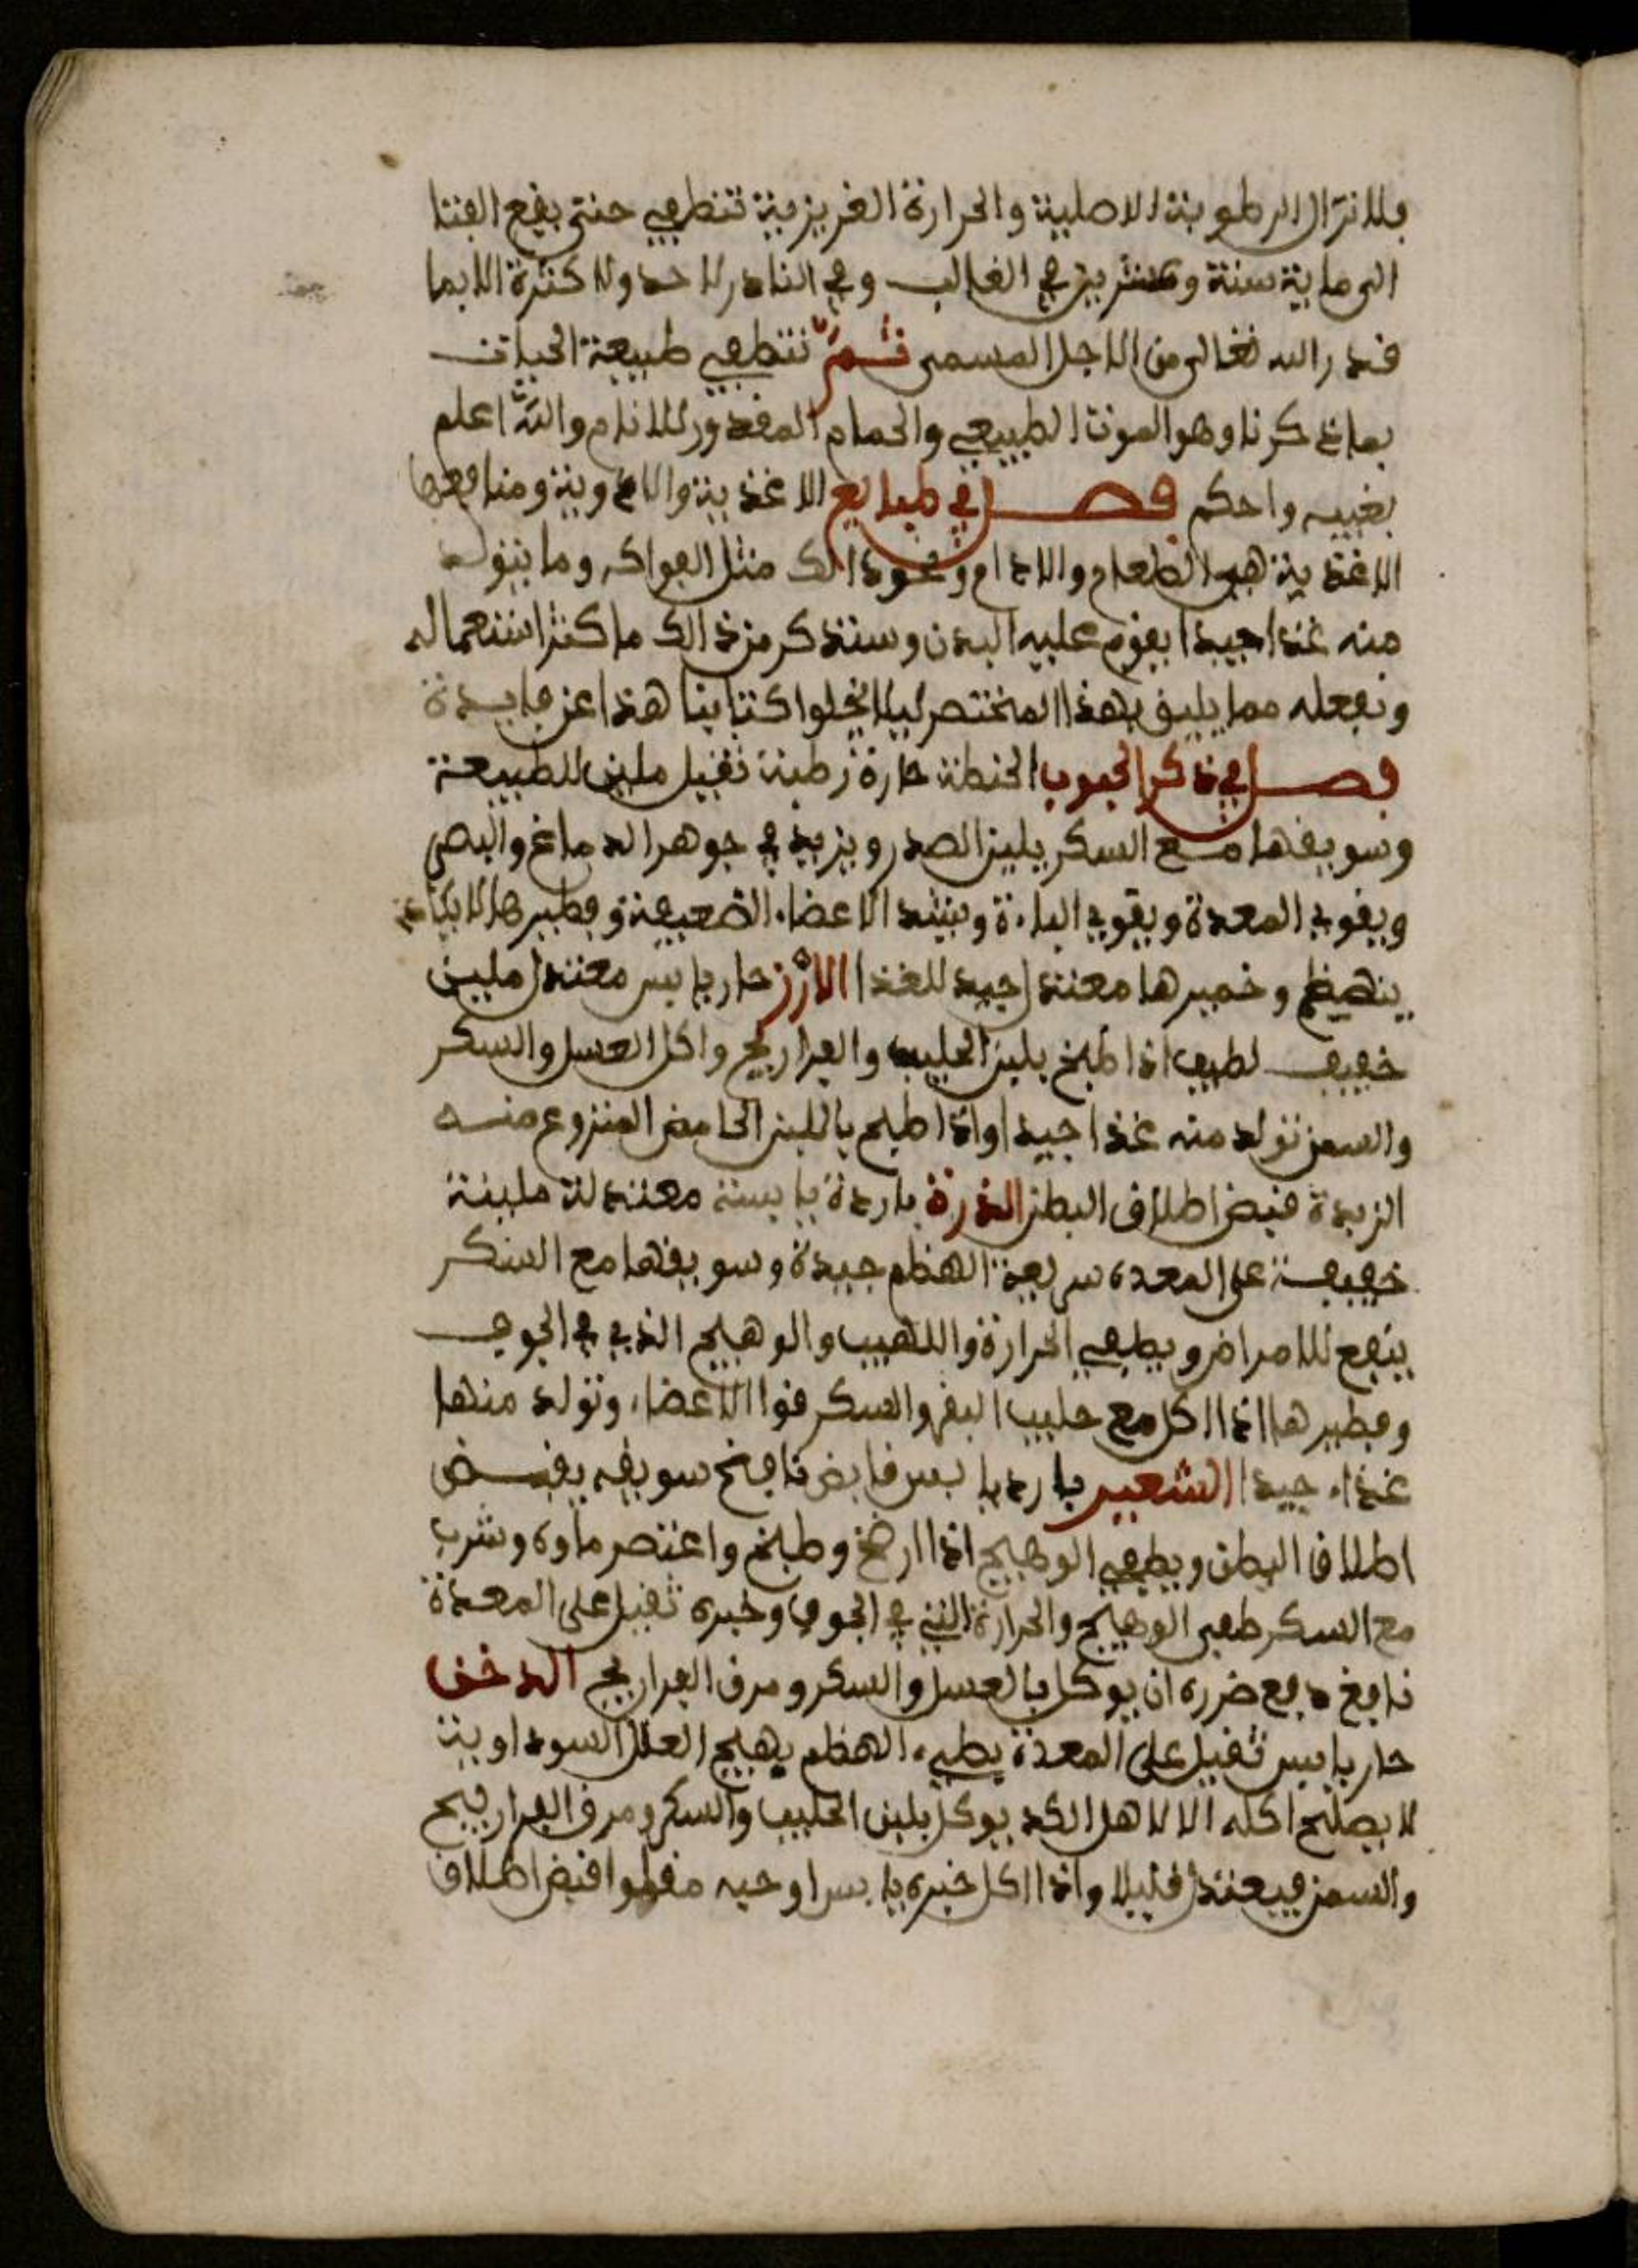 فلا تزال الرطوبة الاصلية والحرارة الغريزية تنطفي حتى يقع الفنا
الى ماية سنة وعشرين في الغالب وفي النادر لا حد ولا كثرة الا بما
قدر الله تعالى من الاجل المسمى ثم تنطفي طبيعة الحيات
بما ذكرنا وهو الموت الطبيعي والحمام المقدور للانام والله اعلم
بغيبه واحكم فصل في طبايع الاغذية والادوية ومنافعها
الاغذية هي الطعام والادام ونحو ذالك مثل الفواكه وما يتولد
منه غذا جيدا يقوم عليه البدن وسنذكر من ذالك ما كثر استعماله
ونفعله مما يليق بهذا المختصر ليلا يخلوا كتابنا هذا عن فايدة
فصل في ذكر الحبوب الحنطة حارة رطبة ثقيل ملين للطبيعة
وسويقها مع السكر يلين الصدر ويزيد في جوهر الدماغ والبصر
ويقوي المعدة ويقوي الباءة ويشد الاعضاء الضعيفة وفطيرها لا يكاد
ينهضم وخميرها معتدل جيد للغذا الارز حار يابس معتدل ملين
خفيف لطيف اذا طبخ بلبن الحليب والفراريج واكل العسل والسكر
والسمن تولد منه غذا جيدا واذا طبخ باللبن الحامض المنزوع منه
الزبدة قبض اطلاق البطن الذرة باردة يابسة معتدلة ملينة
خفيفة على المعدة سريعة الهظم جيدة وسويقها مع السكر
ينفع للامراض ويطفي الحرارة واللهيب والوهيج الذي في الجوف
وفطيرها اذا اكل مع حليب البقر والسكر قوا الاعضاء وتولد منها
غذاء جيدا الشعير بارد يابس قابض نافخ سويقه يقبض
اطلاق البطن ويطفي الوهيج اذا ارضخ وطبخ واعتصر ماوه وشرب
مع السكر طفى الوهيج والحرارة التي في الجوف وخبزه ثقيل على المعدة
نافخ دفع ضرره ان يوكل بالعسل والسكر ومرق الفراريج الدخن
حار يابس ثقيل على المعدة بطيء الهظم يهيج العلل السوداوية
لا يصلح اكله الا لاهل الكد يوكل بلبن الحليب والسكر ومرق الفراريج
والسمن فيعتدل قليلا واذا اكل خبزه يابسا وحبه مقلوا قبض اطلاق